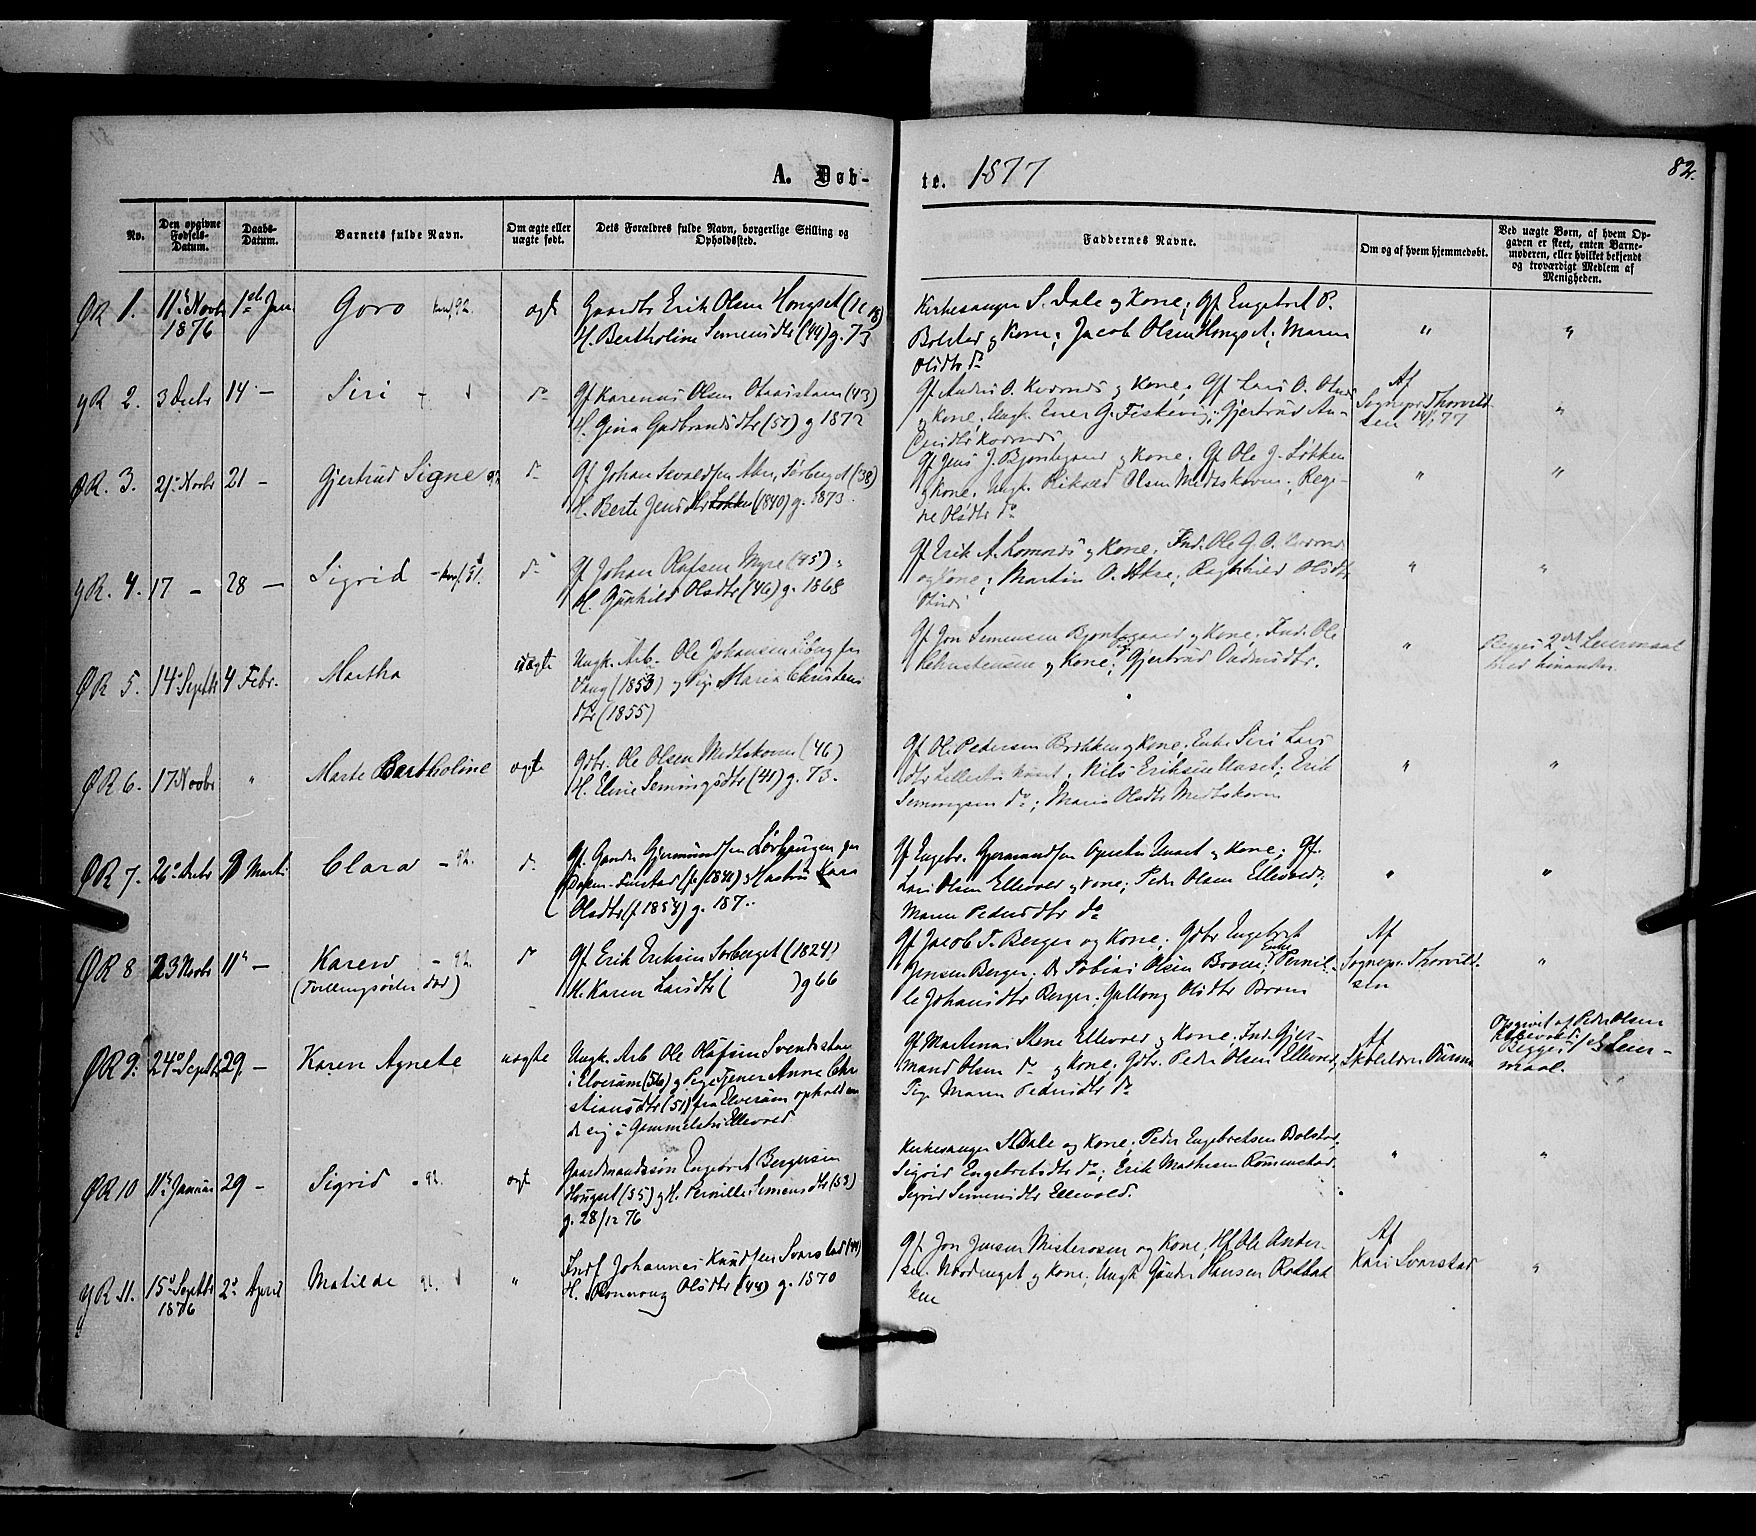 82.
A. Døb-
te. 1877
No.
Den opgivne Fødsels-Datum.
Daabs-Datum.
Barnets fulde Navn.
Om ægte eller uægte født.
Dets Forældres fulde Navn, borgerlige Stilling og Opholdssted.
Faddernes Navne.
Om og af hvem hjemmedøbt.
Ved uægte Børn, af hvem Opgaven er skeet, enten Barnemoderen, eller hvilket bekjendt og troværdigt Medlem af Menigheden.
ØR 1. 11te Novbr 1876 1ste Jan. Goro 92. ægte
Gaardbr Erik Olsen Hongset
H. Bertholine Simensdtr (44) g. 73
Kirkesanger S. Dale og Kone; Gf. Engebret P.
Bolstad og Kone; Jacob Olsen Hongset; Maren
Olsdtr do
" "
YR 2. 3 Decbr 14 - Siri do
Gf Karenus Olsen (43)
H. Gina Gudbrandsdtr (51) g 1872
Gf Anders O. Kvernes og Kone; Gf Lars O.
og Kone; Ungk. Iver G. Fiskevig; Gjertrud
Af
Sognepr. Thorvild-
sen 14/1 77
"
ØR. 3. 21 Novbr 21 - Gjertrud Signe 92 do
Gf Johan Sivaldsen Sørberget (38)
H. Berte Jensdtr Løkken (1840) g. 1873.
Gf Jens J. Bjontegaard og Kone; Gf Ole J. Løkken
og Kone; Ungk. Rikard Olsen Medskoven; Regi-
ne Olsdtr do
" "
YR. 4. 17 - 28 - Sigrid do
Gf Johan Olafsen Myre (45)
H. Gunhild Olsdtr (46) g. 1868
Gf Erik A. Lomnes og Kone; Ind. Ole G. O.
og Kone; Martin O. Akre; Ragnhild Olsdtr
" "
ØR 5. 14 Septbr 4 Febr. Martha uægte
Ungk. Arb. Ole Johansen fra
Vang (1853) og Pige Maria Christens
dtr (1855)
Gf Jon Simensen Bjontegaard og Kone; Ind. Ole
Christensen og Kone; Pige Gjertrud
"
Begges 2det Leiermaal
med hinanden
ØR 6. 17 Novbr " Marte Bertholine ægte
Gdbr. Ole Olsen Medskoven (46)
H. Eline Semingsdtr (41) g. 73.
Gf Ole Pedersen Bækken og Kone; Enke Siri Lars
dtr; Nils Eriksen Unset; Erik
Semingsen do; Maria Olsdtr Medskoven
" "
ØR 7. 26 Decbr Marts Clara - 92. do
Gf. Gunder Gjermundsen Sørhaugen
(f 1841) Hustru Kari
Olsdtr (f 1854) g. 187
Gf Engebr. Gjermundsen Opsether Unset og Kone; Gf.
Lars Olsen Ellevold og Kone; Peder Olsen Ellevold;
Maren Pedersdtr do
" "
ØR 8 23 Novbr 11te - Karen - 92. do
(Tvillingsøster død)
Gf. Erik Eriksen Sørberget (1824)
H. Karen Larsdtr ( ) g 66
Gf Jacob T. Berger og Kone; Gdbr Engebret
Jensen Berger; Do Tobias Olsen Broen; Enke Pernil-
le Johansdtr Berger; Gollaug Olsdtr Broen
Af
Sognepr. Thorvild-
sen
"
ØR 9. 24 Septbr 29 - Karen Agnete uægte
Ungk. Arb Ole Olafsen Svendstuen
i Elverum (56) og Pige Tjener Anne Chri
stiansdtr (51) fra Elverum ophold en
de sig i Gammelsetr Ellevold
Gf Martinus Stene Ellevold og Kone; Ind Gjer-
mund Olsen do og Kone; Gdbr Peder Olsen Ellevold,
Pige Maren Pedersdtr do
Af
Skolelærer
Opgivet af Peder Olsen
Ellevold
Begges 1ste Leier-
maal.
ØR 10 11te Januar 29 - Sigrid - 92. ægte
Gaardmandssøn Engebret Bergersen
Hongset (55) og H. Pernille Simensdtr (53)
g. 28/12 76
Kirkesanger S. Dale og Kone; Peder Engebretsen Bolstad;
Sigrid Engebretsdtr do; Erik Mathisen Rømenstad.
Sigrid Simensdtr Ellevold.
" "
YR 11. 15 Septbr 1876 2 April Matilde 92. "
Indf Johannes Knudsen Svarstad (44)
H. Rønnoug Olsdtr (44) g. 1870
Gf. Jon Jensen Misterosen og Kone; Hf Ole Ander-
sen Nordenget og Kone; Ungk Gunder Hansen Rødbak
ken
Af
Kari Svarstad
"